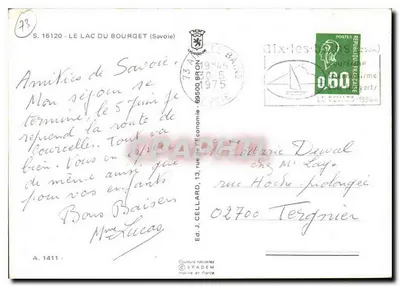 73
S. 16120 - LE LAC DU BOURGET (Savoie)
Amitiés de Savoie.
Mon séjour se
termine, le 5 juin je
reprend la route de
Tout va
bien. Tous
de même ainsi que
pour vos enfants
Bons Baisers
Mme Lucas
A. 1411
Ed. J. CELLARD, 13, rue de l'Économie - 69500 BRON
Couleurs naturelles
© SPADEM
73 AIX LES BAINS
1975
aix-les-bains
POSTES
0,60
REPUBLIQUE FRANCAISE
Duval
chez Mr
rue Hoche prolongée
02700 Tergnier